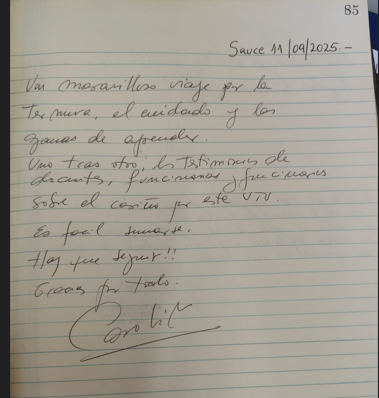 85
Sauce 11/09/2025.-
Un maravilloso viaje por la
ternura, el cuidado y las
ganas de aprender.
Uno tras otro, los testimonios de
docentes, funcionarias y funcionarios
sobre el cariño por este UTU.
Es fácil sumarse.
Hay que seguir!!
Gracias por todo.